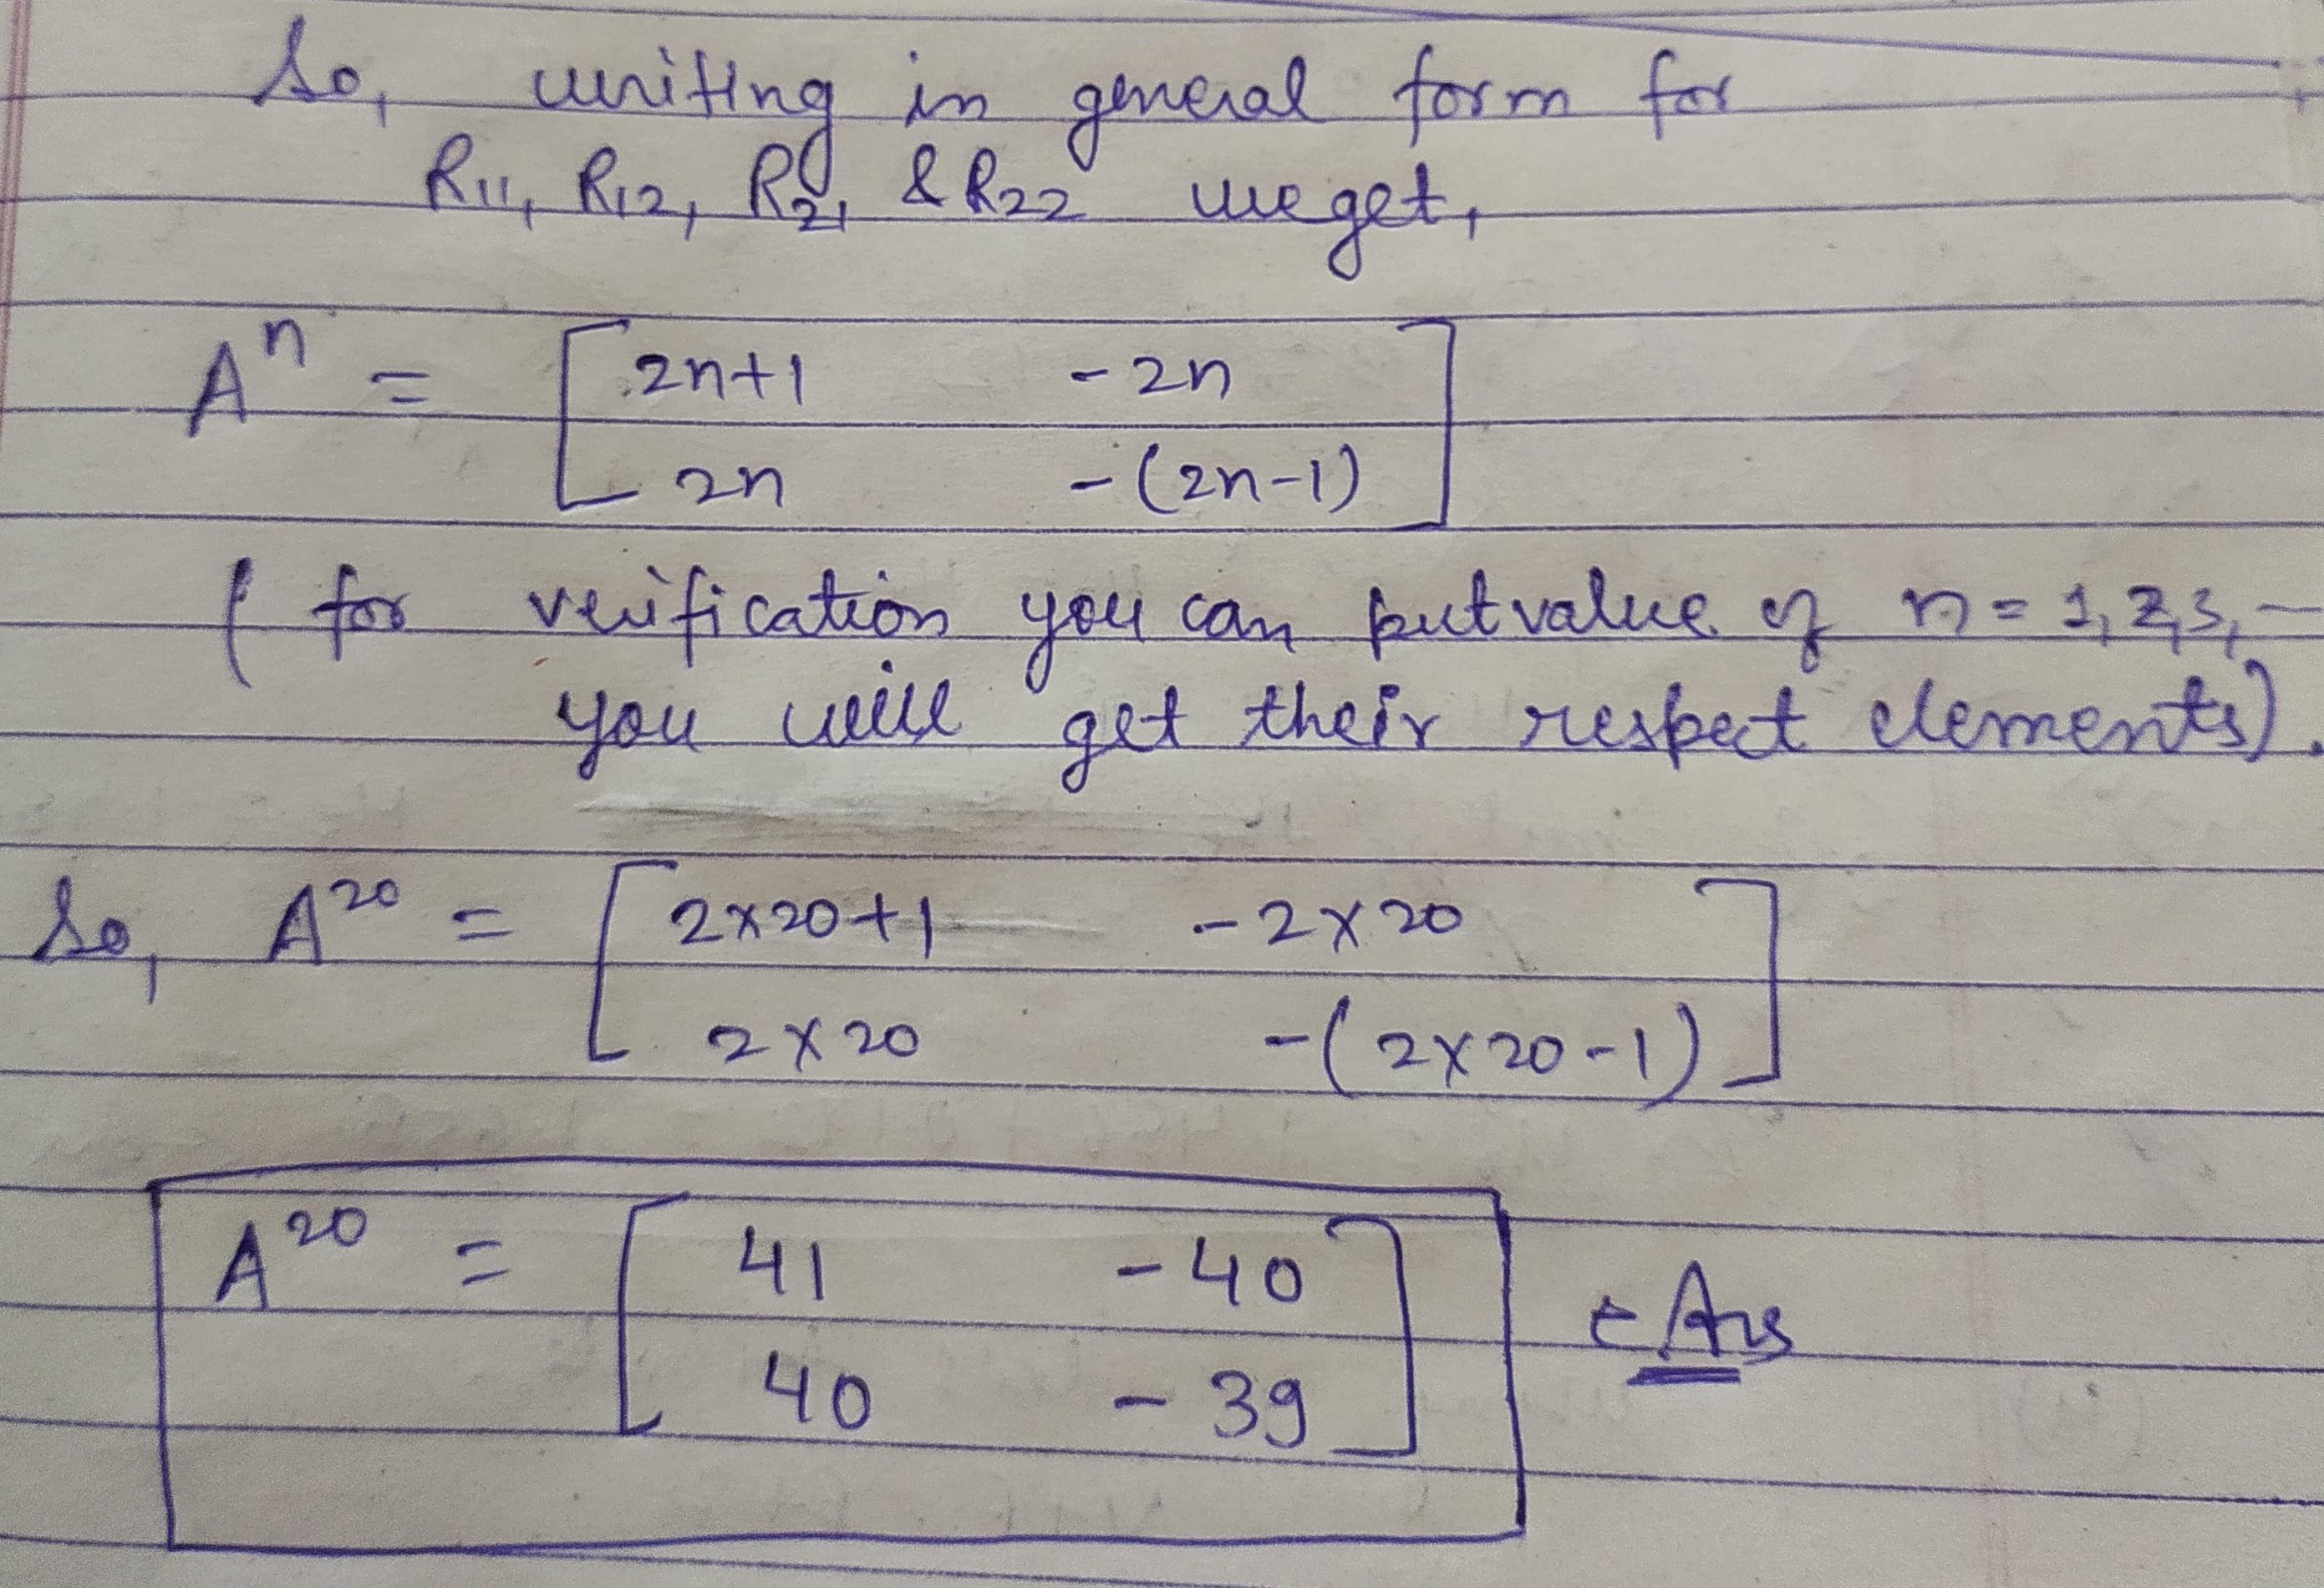 So, writing in general form for
R11, R12, R21 & R22 we get,
A^n = [ 2n+1 -2n
2n -(2n-1) ]
( for verification you can put value of n = 1, 2, 3, --
you will get their respect elements).
So, A^20 = [ 2×20+1 -2×20
2×20 -(2×20-1) ]
A^20 = [ 41 -40
40 -39 ] Ans